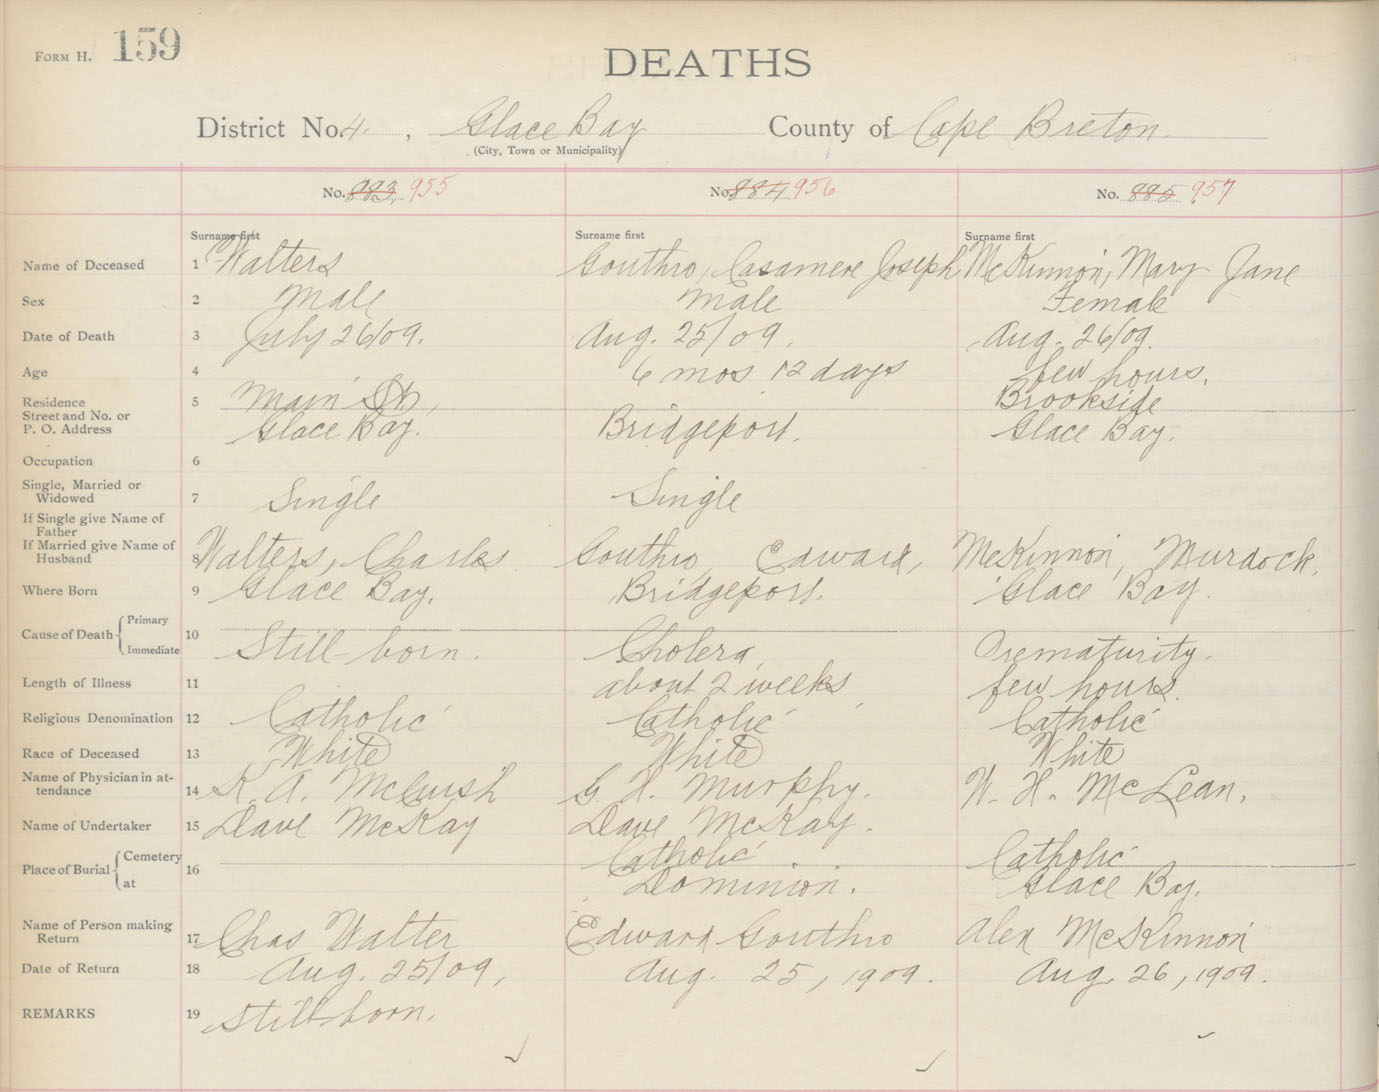 FORM H. 159
DEATHS
District No. 4. , Glace Bay County of Cape Breton
(City, Town or Municipality)
No. 883. 955 No. 884 956 No. 885 957
Surname first Surname first Surname first
Name of Deceased 1 Walters Gouthro, Casamere Joseph McKinnon, Mary Jane
Sex 2 Male Male Female
Date of Death 3 July 26/09. Aug. 25/09. Aug. 26/09.
Age 4 6 mos 12 days few hours.
Residence 5 Main St., Brookside
Street and No. or
P. O. Address Glace Bay. Bridgeport. Glace Bay.
Occupation 6
Single, Married or
Widowed 7 Single Single
If Single give Name of
Father
If Married give Name of
Husband 8 Walters, Charles Gouthro, Edward, McKinnon, Murdock.
Where Born 9 Glace Bay. Bridgeport. Glace Bay.
Cause of Death Primary 10
Immediate Still-born. Cholera Prematurity.
Length of Illness 11 about 2 weeks few hours.
Religious Denomination 12 Catholic Catholic Catholic
Race of Deceased 13 White White White
Name of Physician in at-
tendance 14 K. A. McCuish G. H. Murphy. W. H. McLean.
Name of Undertaker 15 Dave McKay Dave McKay.
Place of Burial Cemetery 16 Catholic Catholic
at Dominion. Glace Bay.
Name of Person making
Return 17 Chas Walter Edward Gouthro Alex McKinnon
Date of Return 18 Aug. 25/09, Aug. 25, 1909. Aug. 26, 1909.
REMARKS 19 Stillborn.